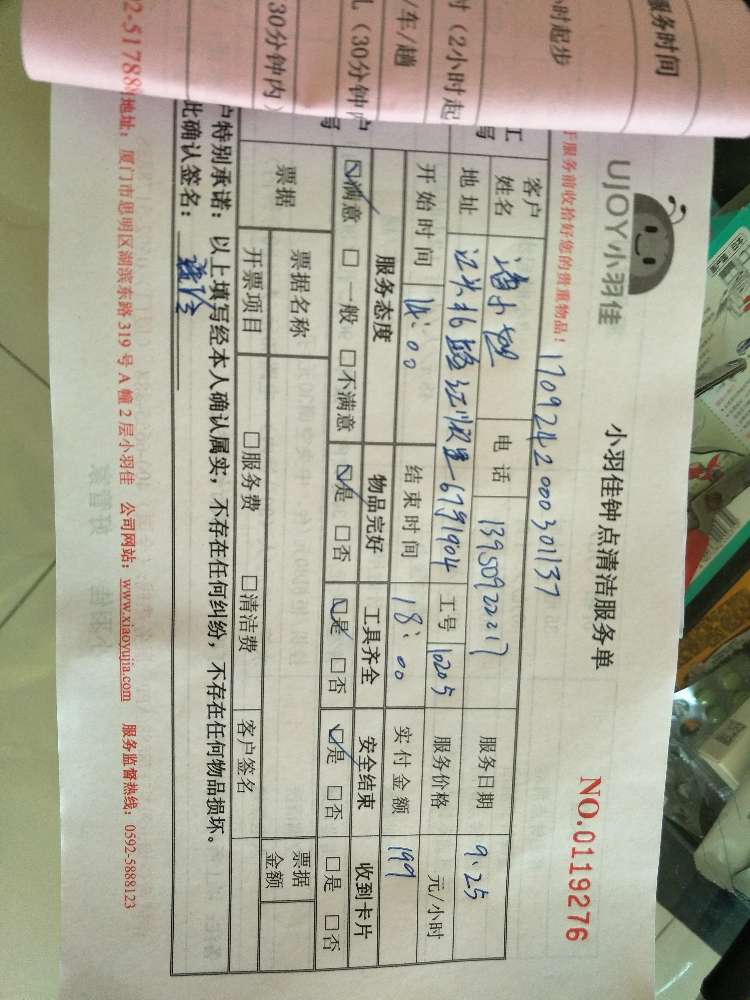 UJOY小羽佳
小羽佳钟点清洁服务单
NO.0119276
1709242000301137
服务前收拾好您的贵重物品！
客户姓名
电话
13950922217
服务日期
9.25
地址
6791904
工号
10205
服务价格
元/小时
开始时间
14:00
结束时间
18:00
实付金额
199
服务态度
物品完好
工具齐全
安全结束
收到卡片
☑满意 □一般 □不满意
☑是 □否
☑是 □否
☑是 □否
□是 □否
票据
票据名称
票据金额
开票项目
□服务费 □清洁费
客户签名
户特别承诺：以上填写经本人确认属实，不存在任何纠纷，不存在任何物品损坏。
此确认签名：
92-51788
地址：厦门市思明区湖滨东路 319 号 A 幢 2 层小羽佳 公司网站：www.xiaoyujia.com 服务监督热线：0592-5888123
服务时间
小时起步
时（2小时起
/车/趟
（30分钟
30分钟内）